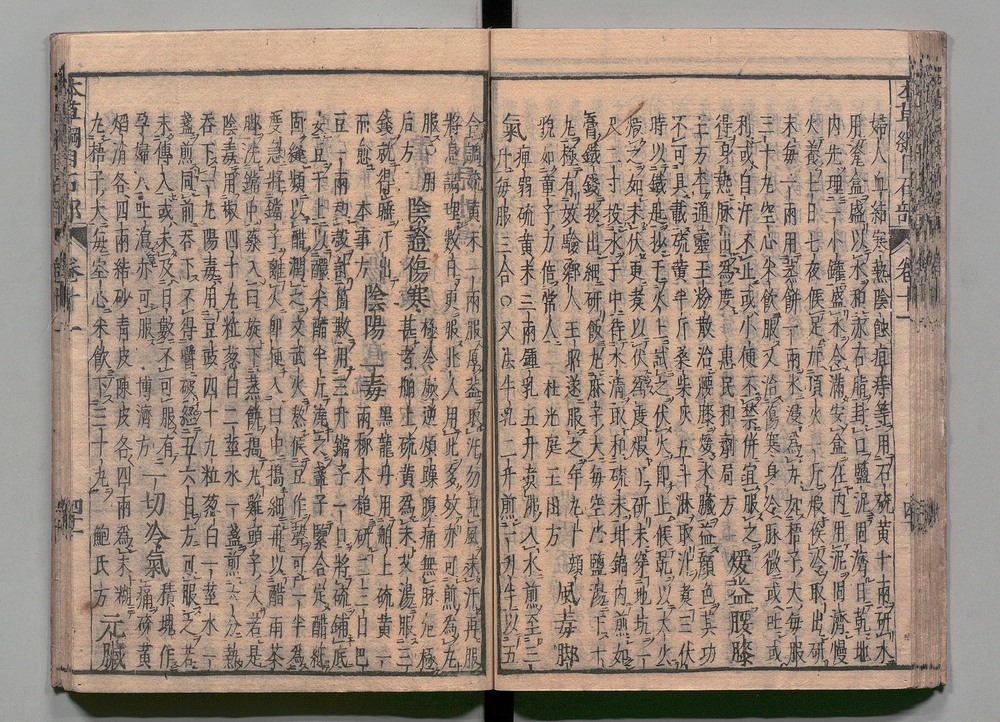 婦人血結寒熱陰蝕疽痔等用石硫黃十兩研末
用瓷盒盛以水和赤石脂封口鹽泥固濟日乾地
內先埋一小罐盛水令滿安盒在內用泥固濟慢
火養七日七夜候足加頂火一斤候冷取出研
末每一兩用蒸餅一兩水浸為丸如梧子大每服
三十丸空心米飲服又治傷寒身冷脉微或吐或
利或自汗不止或小便不禁併宜服之
得身熱脉出為度 惠民和劑局方 煖益腰膝
王方平通靈玉粉散治腰膝暖水臟益顏色其功
不可具載硫黃半斤桑柴灰五斗淋取汁煮三伏
時以鐵匙抄於火上試之伏火即止候乾以大火
煆之如未伏更煮以伏為度煆了研末穿地坑一
尺二寸投水于中待水清取和硫末坩鍋內煎如
膏鐵錢抄出細研飯丸麻子大每空心鹽湯下十
丸極有效驗鄉人王昭遂服之年九十顏
貌如童子力倍常人 杜光庭玉函方 風毒脚
氣 痺弱硫黃末三兩鍾乳五升煮沸入水煎至三
升每服三合○又法牛乳三升煎一升半以五
合調硫黃末一兩服厚蓋取汗勿見風未汗再服
將息調理數日更服北人用此多效亦可煎為丸
服 肘后方 陰證傷寒 極冷厥逆煩躁腹痛無脉危極
甚者舶上硫黃為末艾湯服三
錢就得睡汗出而愈 本事方 陰陽二毒 黑龍丹用舶上硫黃一
兩柳木槌研二三日巴
豆一兩和殼計箇數用三升鐺子一口將硫鋪底
安豆于上以釅米醋半斤澆之盞子緊合定醋紙
固縫頻以醋潤之文武火熬候豆作聲可一半為
度急將鐺子離火即便入臼中搗細再以醋兩茶
脚洗鐺中藥入臼旋下蒸餅搗丸雞頭子大若是
陰毒用椒四十九粒葱白二莖水一盞煎六分熱
吞下一丸陽毒用豆豉四十九粒葱白一莖水一
盞煎同前吞下不得嚼破經五六日方可服之若
未傳入或未及日數不可服有
孕婦人吐瀉亦可服 博濟方 一切冷氣 積塊作
痛硫黃
焰消各四兩結砂青皮陳皮各四兩為末糊
丸梧子大每空心米飲下三十丸 鮑氏方 元臟
本草綱目石部 卷十一